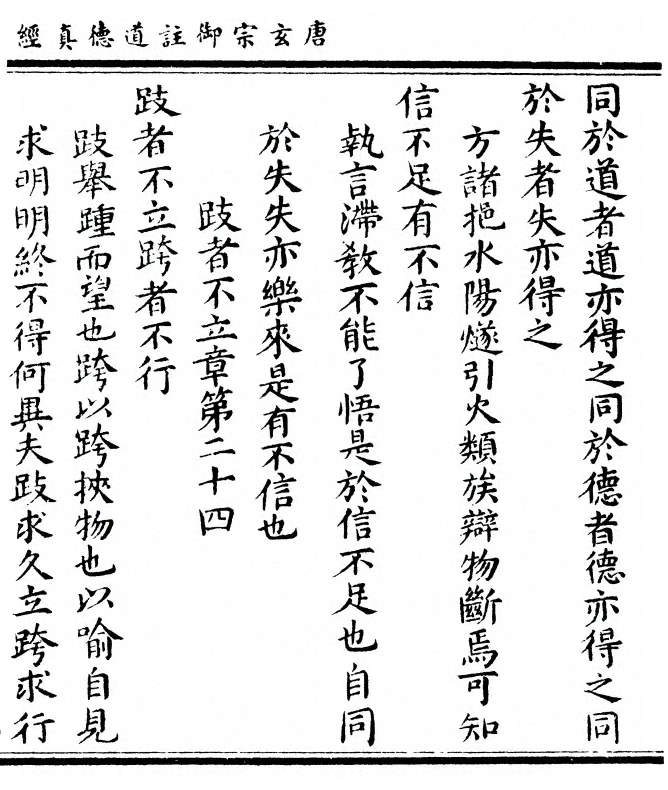 唐玄宗御註道德真經
同於道者道亦得之同於德者德亦得之同
於失者失亦得之
方諸挹水陽燧引火類族辯物斷焉可知
信不足有不信
執言滯教不能了悟是於信不足也自同
於失失亦樂來是有不信也
跂者不立章第二十四
跂者不立跨者不行
跂舉踵而望也跨以跨挾物也以喻自見
求明明終不得何異夫跂求久立跨求行